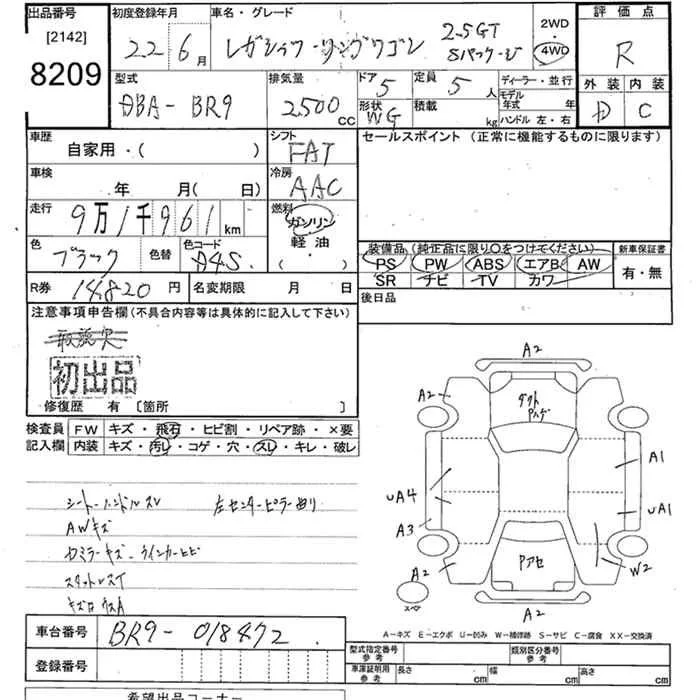 出品番号
[2142]
8209
初度登録年月
22 6月
車名・グレード
レガシィツーリングワゴン 2.5GT Sパッケージ
2WD
4WD
評価点
R
外装 内装
D C
型式
DBA-BR9
排気量
2500cc
ドア 5
形状 WG
定員 5人
積載 kg
ディーラー・並行
モデル年式 年
ハンドル 左・右
車歴
自家用・( )
シフト
FAT
セールスポイント (正常に機能するものに限ります)
車検
年 月( 日)
冷房
AAC
走行
9万1千961km
燃料
ガソリン
軽油
・( )
色
ブラック
色替
色コード
A4S
装備品(純正品に限り○をつけてください)
PS PW ABS エアB AW
SR ナビ TV カワ
新車保証書
有・無
R券 14820円
名変期限 月 日
後日品
注意事項申告欄(不具合内容等は具体的に記入して下さい)
初出品
修復歴 有 [箇所 ]
検査員記入欄
FW キズ・飛石・ヒビ割・リペア跡・×要
内装 キズ・汚レ・コゲ・穴・スレ・キレ・破レ
シート・ハンドルスレ 左センターピラー曲り
AWキズ
カミラーキズ・ウインカーヒビ
A2
A2
A1
UA4
UA1
A3
Pアセ
A2
W2
スペア
A2
A-キズ E-エクボ U-凹み W-補修跡 S-サビ C-腐食 XX-交換済
車台番号 BR9-018472
登録番号
型式指定番号 参考
類別区分番号 参考
車庫証明用 参考 長さ cm 幅 cm 高さ cm
希望出品コーナー